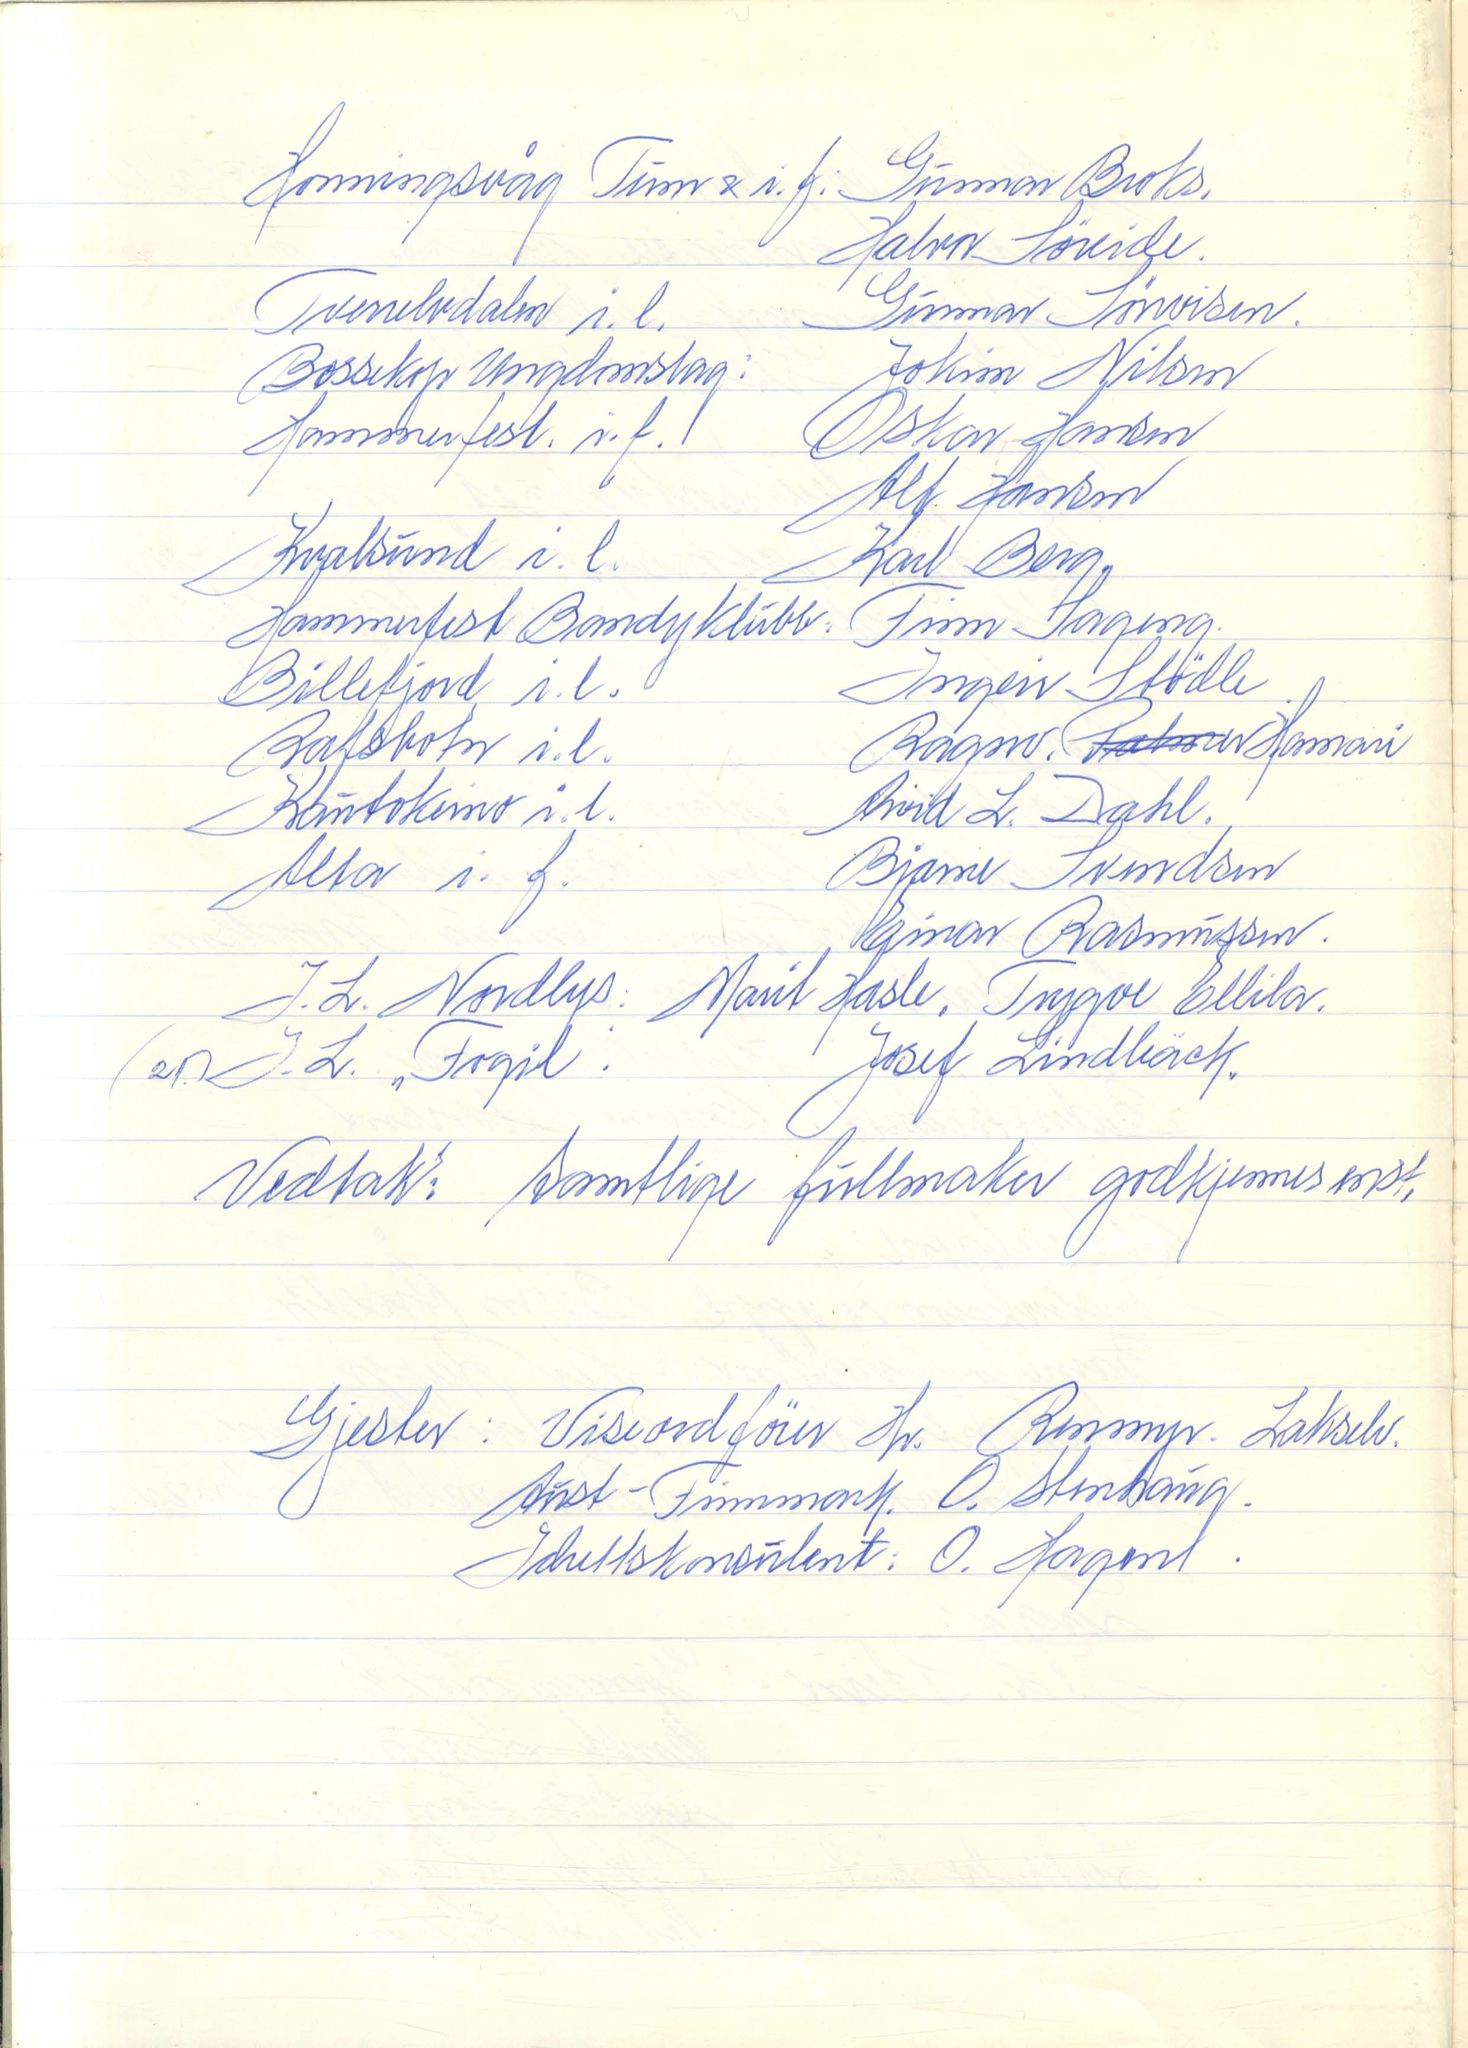 Honningsvåg Turn & i.f: Gunnar Broks.
Halvor Söreide.
Tverrelvdalen i.l. Gunnar Sörvisen.
Bossekop Ungdomslag: Jokim Nilsen
Hammerfest. i.f. Oskar Hansen
Alf. Hansen
Kvalsund i.l. Karl Berg.
Hammerfest Bandyklubb: Finn Hageng.
Billefjord i.l. Ingeir Stödle.
Rafsbotn i.l. Ragnv. Hamari
Kautokeino i.l. Arvid L. Dahl.
Alta i.f. Bjarne Svendsen
Einar Rasmussen.
I.L. Nordlys: Marit Hasle. Trygve Ellila.
I.L. „Frogil: Josef Lindbäck.
Vedtak: Samtlige fullmaker godkjennes enst.
Gjester: Viseordförer Hr. Rennmyr. Lakselv.
Aust-Finnmark. O. Stenhaug.
Idrettskonsulent: O. Hagen.